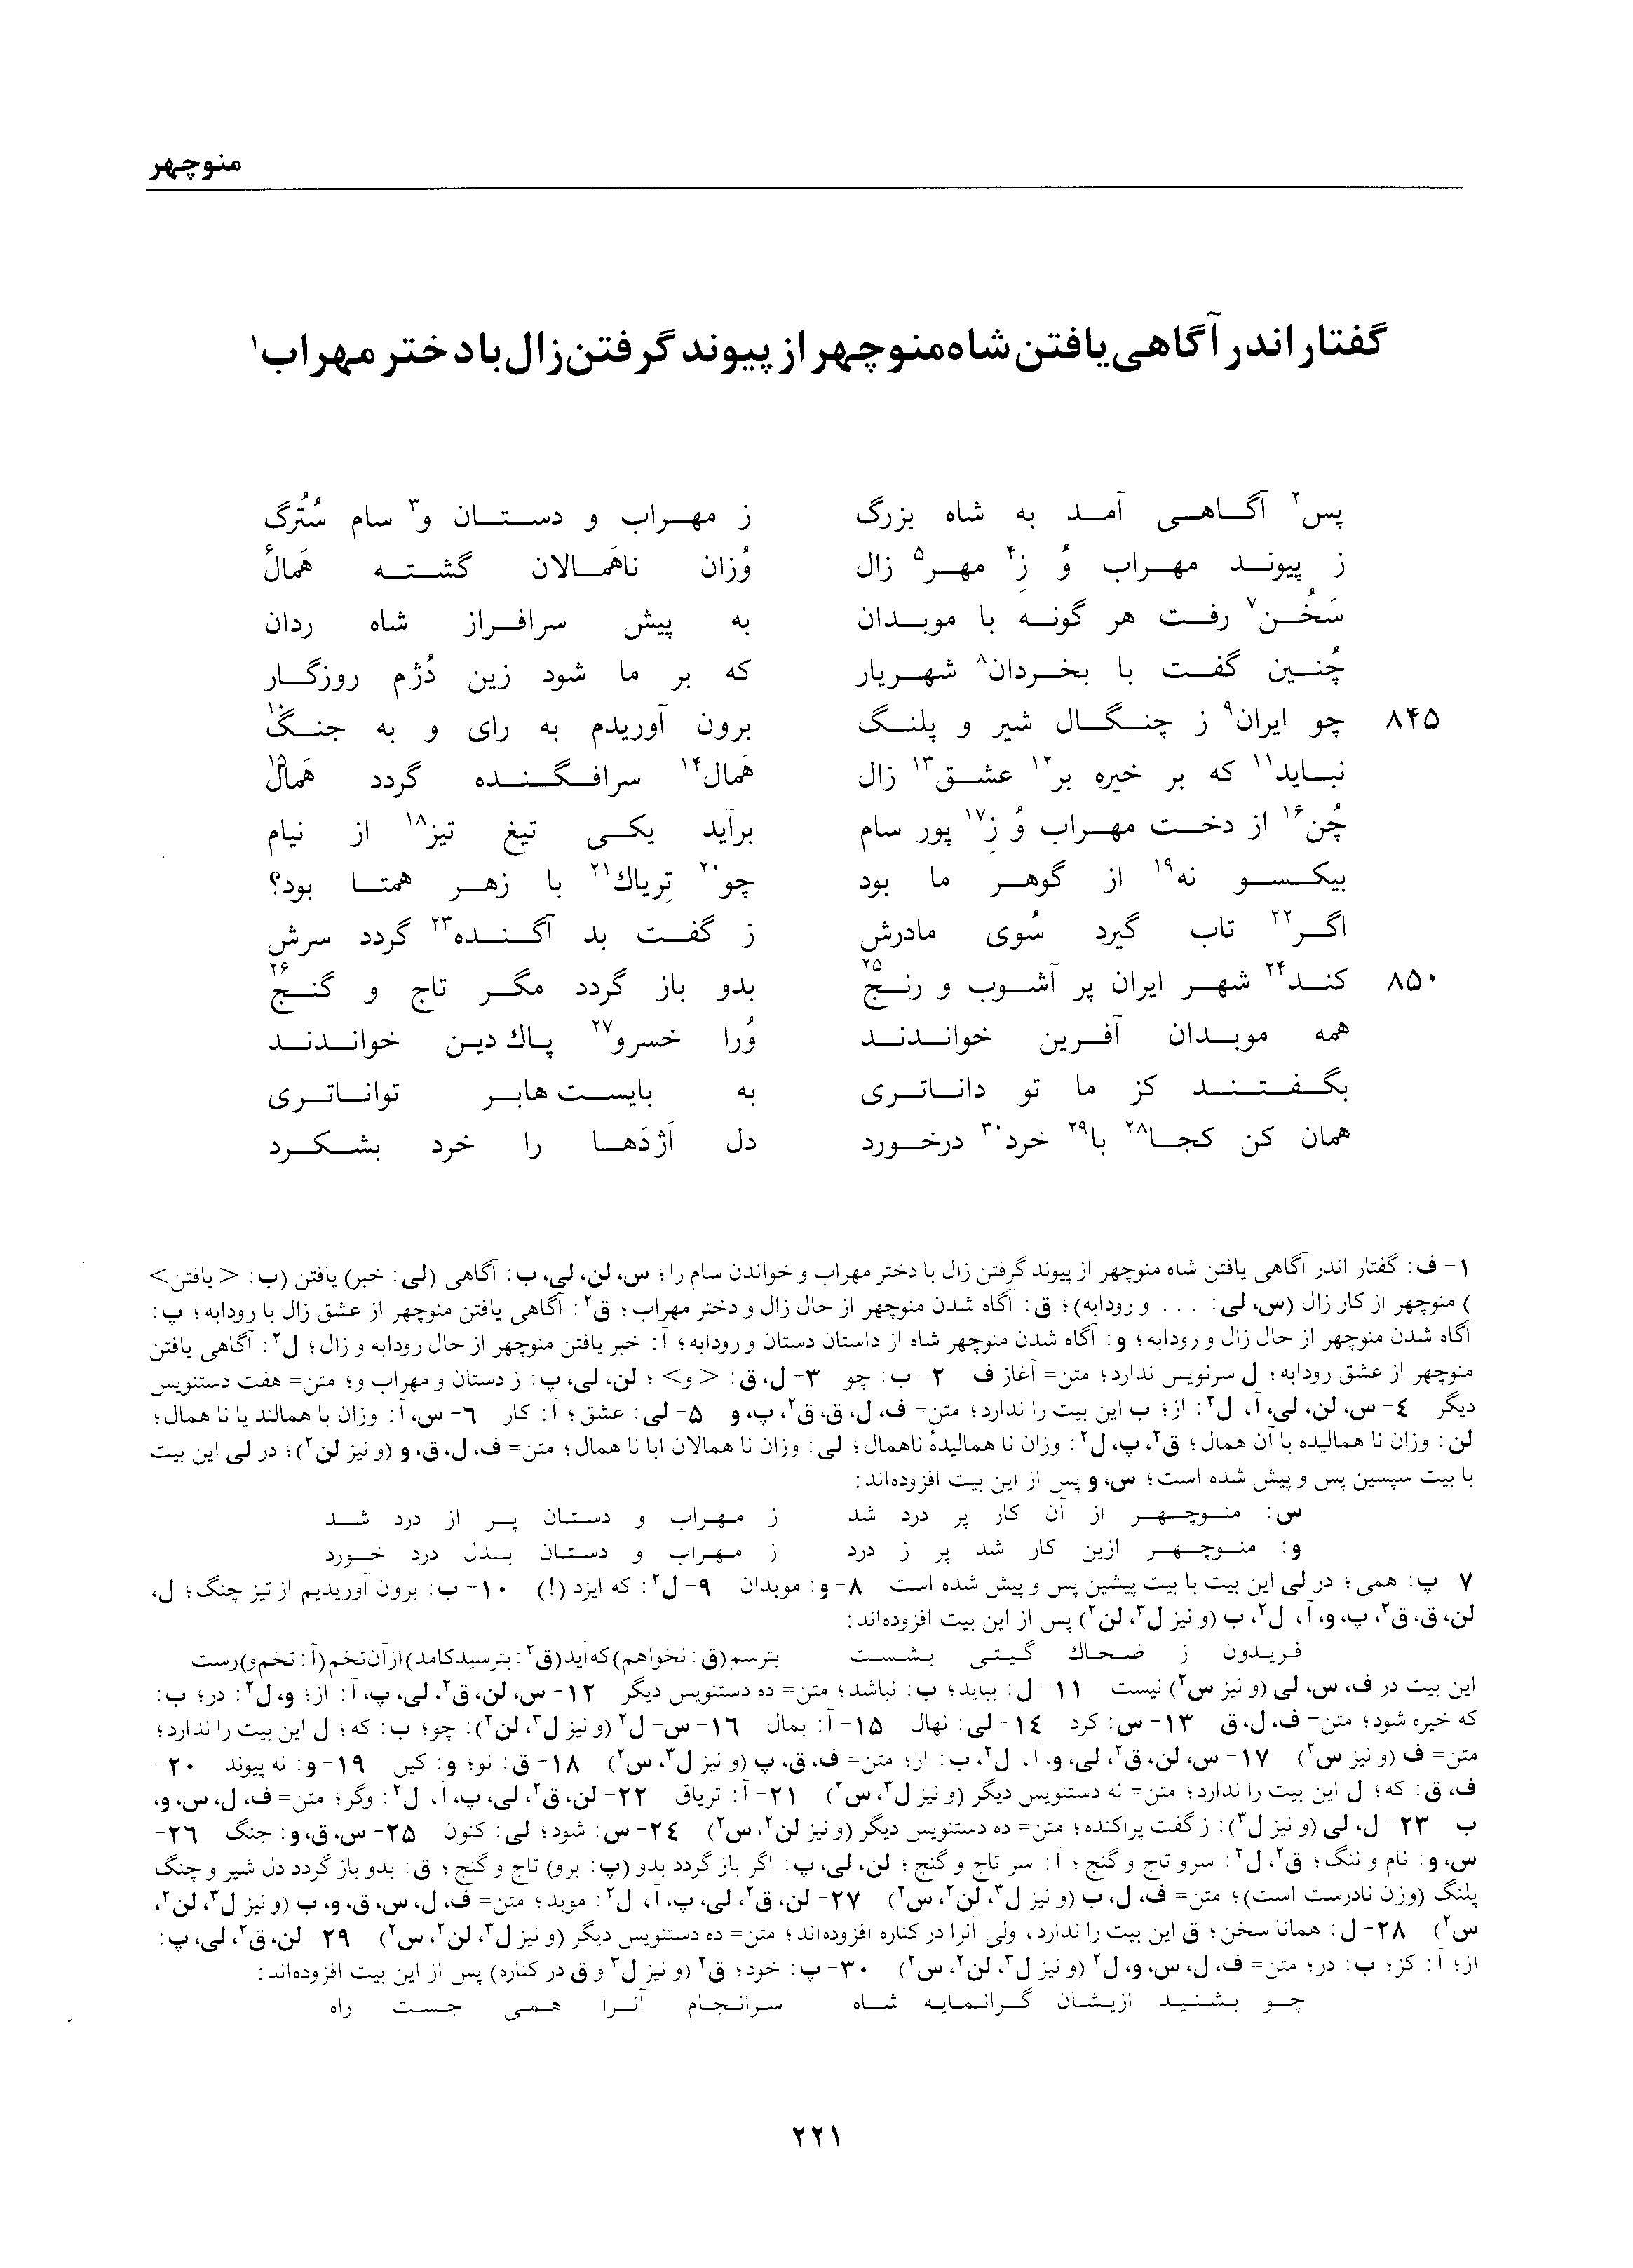 منوچهر
گفتار اندر آگاهی یافتن شاه منوچهر از پیوند گرفتن زال با دختر مهراب۱
پس۲ آگاهی آمد به شاه بزرگ ز مهراب و دستان و۳ سام سُتُرگ
ز پیوند مهراب وُ زِ۴ مهر۵ زال وُزان ناهَمالان گشته هَمال۶
سَخُن۷ رفت هر گونه با موبدان به پیش سرافراز شاه ردان
چُنین گفت با بخردان۸ شهریار که بر ما شود زین دُژم روزگار
۸۴۵ چو ایران۹ ز چنگال شیر و پلنگ برون آوریدم به رای و به جنگ۱۰
نباید۱۱ که بر خیره بر۱۲ عشق۱۳ زال هَمال۱۴ سرافگنده گردد هَمال۱۵
چُن۱۶ از دخت مهراب وُ زِ۱۷ پور سام برآید یکی تیغ تیز۱۸ از نیام
بیکسو نه۱۹ از گوهر ما بود چو۲۰ تِریاك۲۱ با زهر همتا بود؟
اگر۲۲ تاب گیرد سُوی مادرش ز گفت بد آگنده۲۳ گردد سرش
۸۵۰ کند۲۴ شهر ایران پر آشوب و رنج۲۵ بدو باز گردد مگر تاج و گنج۲۶
همه موبدان آفرین خواندند وُرا خسرو۲۷ پاك دین خواندند
بگفتند کز ما تو داناتری به بایست هابر تواناتری
همان کن کجا۲۸ با۲۹ خرد۳۰ درخورد دل اَژدَها را خرد بشکرد
۱- ف: گفتار اندر آگاهی یافتن شاه منوچهر از پیوند گرفتن زال با دختر مهراب و خواندن سام را؛ س، لن، لی، ب: آگاهی (لی: خبر) یافتن (ب: < یافتن>
) منوچهر از کار زال (س، لی: ... و رودابه)؛ ق: آگاه شدن منوچهر از حال زال و دختر مهراب؛ ق۲: آگاهی یافتن منوچهر از عشق زال با رودابه؛ پ:
آگاه شدن منوچهر از حال زال و رودابه؛ و: آگاه شدن منوچهر شاه از داستان دستان و رودابه؛ آ: خبر یافتن منوچهر از حال رودابه و زال؛ ل۲: آگاهی یافتن
منوچهر از عشق رودابه؛ ل سرنویس ندارد؛ متن= آغاز ف ۲- ب: چو ۳- ل، ق: < و> ؛ لن، لی، پ: ز دستان و مهراب و؛ متن= هفت دستنویس
دیگر ٤- س، لن، لی، آ، ل۲: از؛ ب این بیت را ندارد؛ متن= ف، ل، ق، ق۲، پ، و ۵- لی: عشق؛ آ: کار ٦- س، آ: وزان با همالند یا نا همال؛
لن: وزان نا همالیده با آن همال؛ ق۲، پ، ل۲: وزان نا همالیدهٔ ناهمال؛ لی: وزان نا همالان ابا نا همال؛ متن= ف، ل، ق، و (و نیز لن۲)؛ در لی این بیت
با بیت سپسین پس و پیش شده است؛ س، و پس از این بیت افزوده‌اند:
س: منوچهر از آن کار پر درد شد ز مهراب و دستان پر از درد شد
و: منوچهر ازین کار شد پر ز درد ز مهراب و دستان بدل درد خورد
۷- پ: همی؛ در لی این بیت با بیت پیشین پس و پیش شده است ۸- و: موبدان ۹- ل۲: که ایزد (!) ۱۰- ب: برون آوریدیم از تیز چنگ؛ ل،
لن، ق، ق۲، پ، و، آ، ل۲، ب (و نیز ل۳، لن۲) پس از این بیت افزوده‌اند:
فریدون ز ضحاك گیتی بشست بترسم (ق: نخواهم) که آید (ق۲: بترسید کامد) از آن تخم (آ: تخم و) رست
این بیت در ف، س، لی (و نیز س۲) نیست ۱۱- ل: بباید؛ ب: نباشد؛ متن= ده دستنویس دیگر ۱۲- س، لن، ق۲، لی، پ، آ: از؛ و، ل۲: در؛ ب:
که خیره شود؛ متن= ف، ل، ق ۱۳- س: کرد ۱٤- لی: نهال ۱۵- آ: بمال ۱٦- س- ل۲ (و نیز ل۳، لن۲): چو؛ ب: که؛ ل این بیت را ندارد؛
متن= ف (و نیز س۲) ۱۷- س، لن، ق۲، لی، و، آ، ل۲، ب: از؛ متن= ف، ق، پ (و نیز ل۳، س۲) ۱۸- ق: نو؛ و: کین ۱۹- و: نه پیوند ۲۰-
ف، ق: که؛ ل این بیت را ندارد؛ متن= نه دستنویس دیگر (و نیز ل۳، س۲) ۲۱- آ: تریاق ۲۲- لن، ق۲، لی، پ، آ، ل۲: وگر؛ متن= ف، ل، س، و،
ب ۲۳- ل، لی (و نیز ل۳): ز گفت پراکنده؛ متن= ده دستنویس دیگر (و نیز لن۲، س۲) ۲٤- س: شود؛ لی: کنون ۲۵- س، ق، و: جنگ ۲٦-
س، و: نام و ننگ؛ ق۲، ل۲: سر و تاج و گنج؛ آ: سر تاج و گنج؛ لن، لی، پ: اگر باز گردد بدو (پ: برو) تاج و گنج؛ ق: بدو باز گردد دل شیر و چنگ
پلنگ (وزن نادرست است)؛ متن= ف، ل، ب (و نیز ل۳، لن۲، س۲) ۲۷- لن، ق۲، لی، پ، آ، ل۲: موبد؛ متن= ف، ل، س، ق، و، ب (و نیز ل۳، لن۲،
س۲) ۲۸- ل: همانا سخن؛ ق این بیت را ندارد، ولی آنرا در کناره افزوده‌اند؛ متن= ده دستنویس دیگر (و نیز ل۳، لن۲، س۲) ۲۹- لن، ق۲، لی، پ:
از؛ آ: کز؛ ب: در؛ متن= ف، ل، س، و، ل۲ (و نیز ل۳، لن۲، س۲) ۳۰- پ: خود؛ ق۲ (و نیز ل۳ و ق در کناره) پس از این بیت افزوده‌اند:
چو بشنید ازیشان گرانمایه شاه سرانجام آنرا همی جست راه
۲۲۱